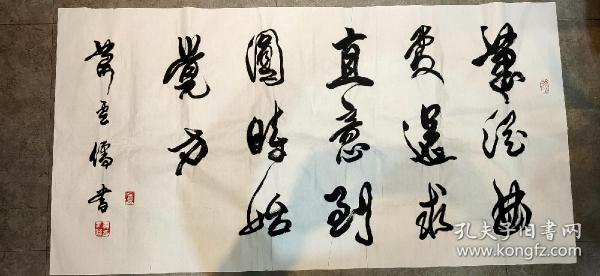 筆從曲
處還求
直意到
圓時始
覺方
蕭雲儒書
孔夫子旧书网
www.kongfz.com